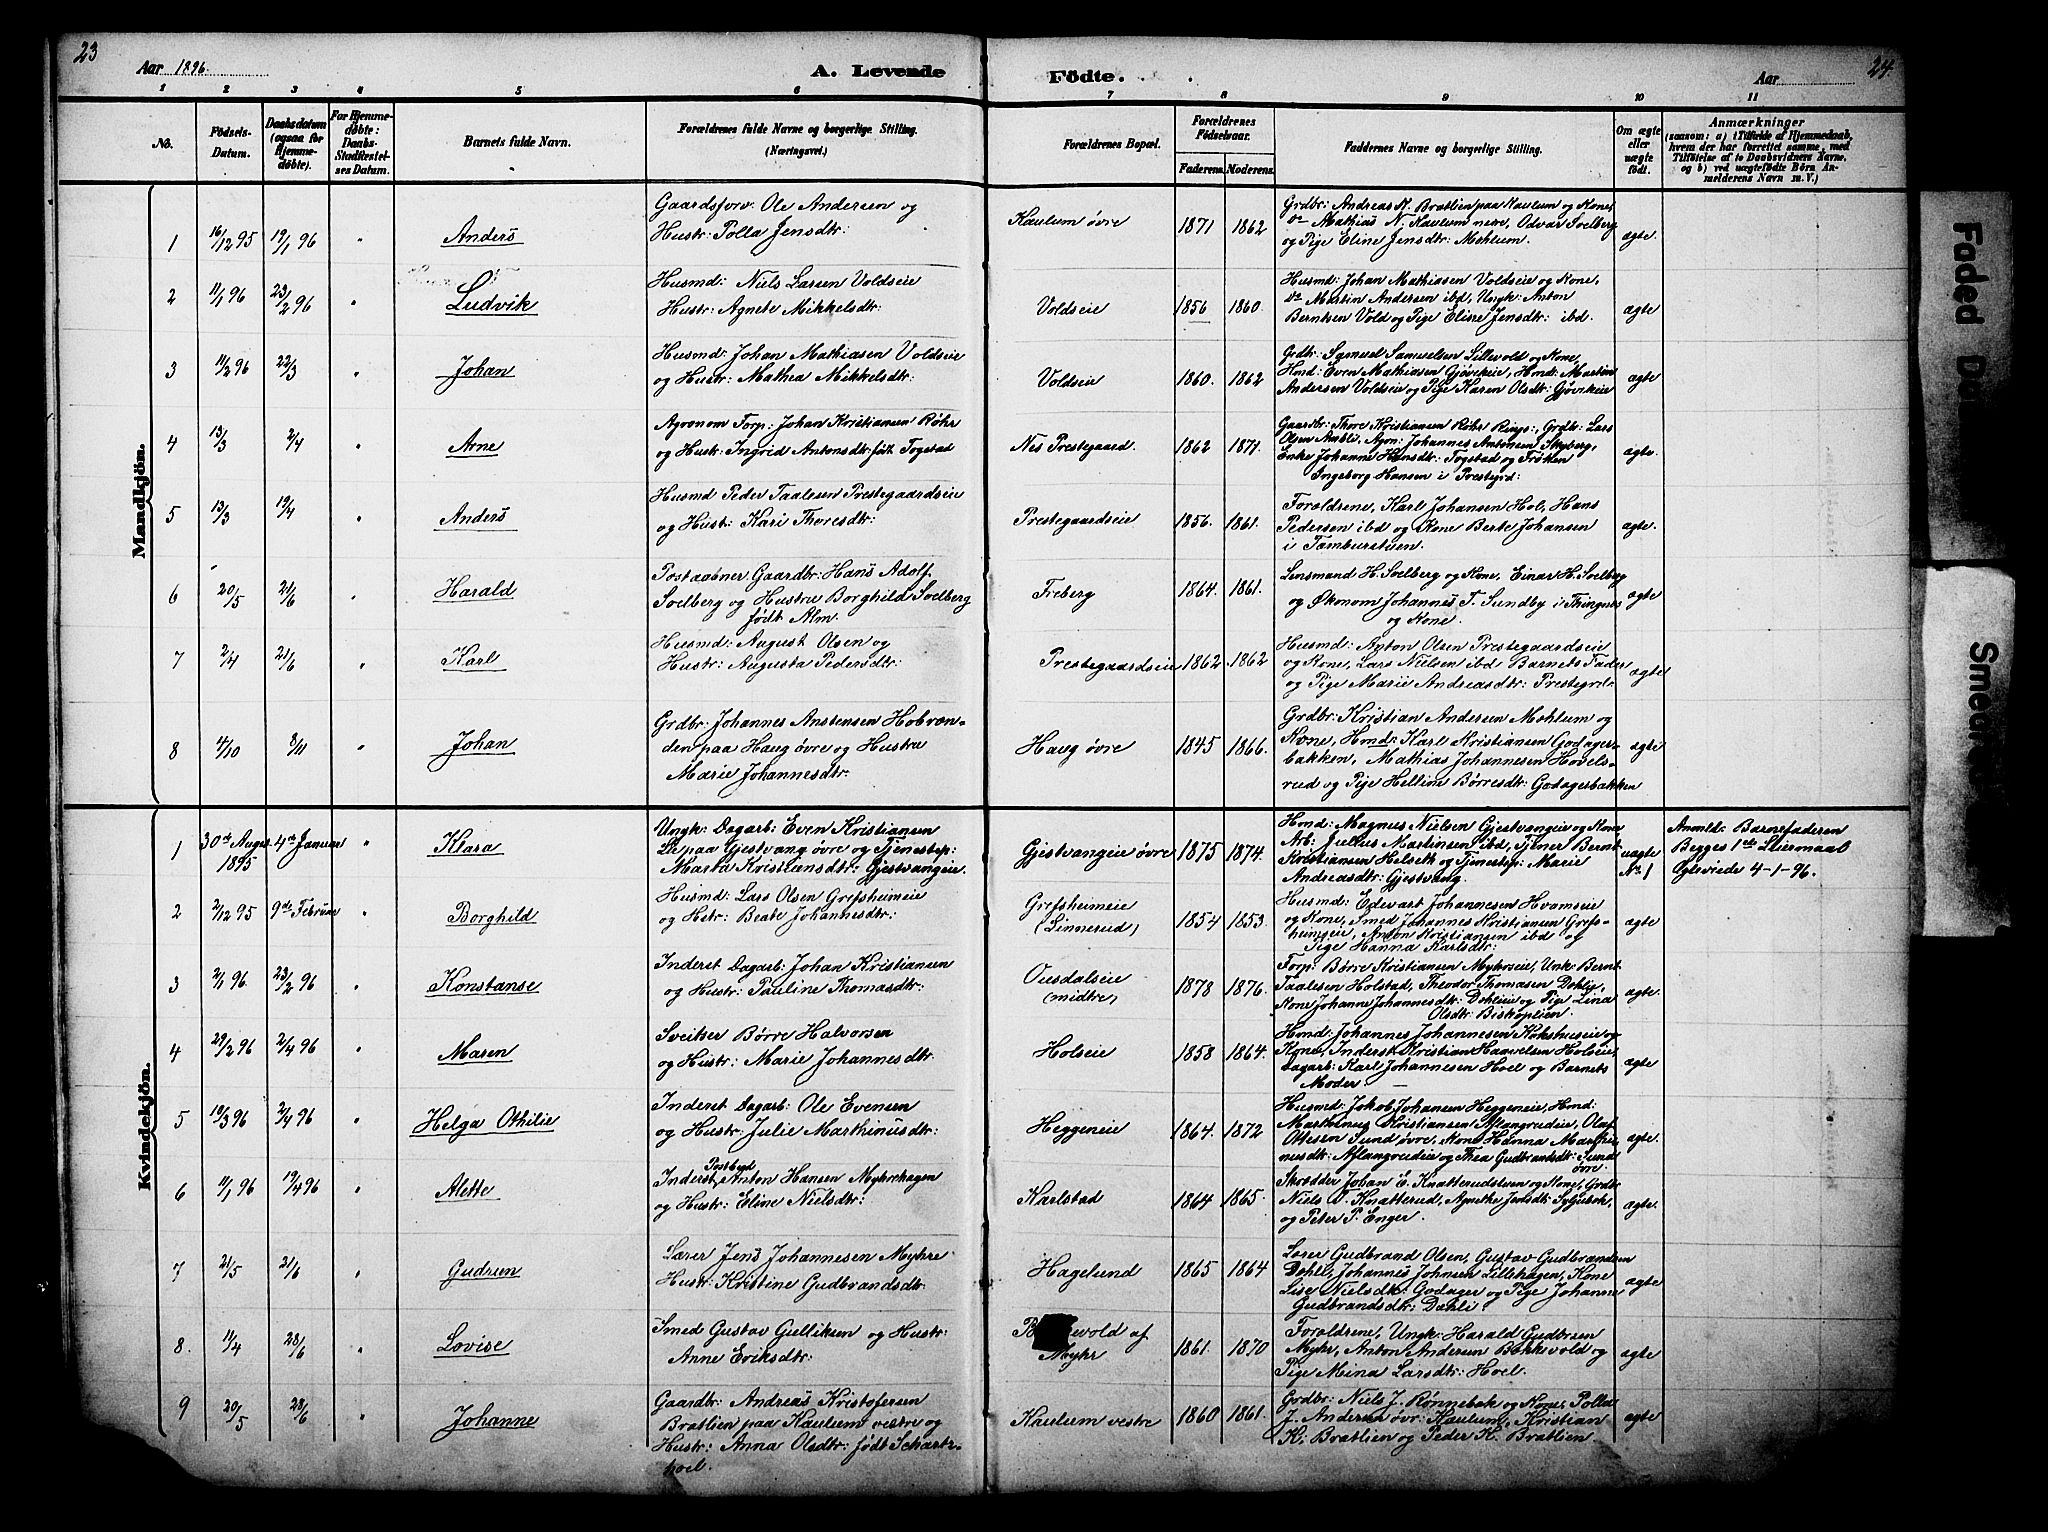 23
Aar 1896.
A. Levende
Födte.
Aar
24.
1 2 3 4 5 6 7 8 9 10 11
No.
Födsels-
Datum.
Daabsdatum
(ogsaa for
Hjemme-
döbte).
For Hjemme-
döbte:
Daabs-
Stadfæstel-
ses Datum.
Barnets fulde Navn.
Forældrenes fulde Navne og borgerlige Stilling.
(Næringsvei.)
Forældrenes Bopæl.
Forældrenes
Födselsaar.
Faderens. Moderens.
Faddernes Navne og borgerlige Stilling.
Om ægte
eller
uægte
födt.
Anmærkninger
(saasom: a) i Tilfælde af Hjemmedaab,
hvem der har forrettet samme, med
Tilföielse af to Daabsvidners Navne.
og b) ved uægtefödte Börn An-
melderens Navn m. V.)
Mandkjön.
1 16/12 95 19/1 96 " Anders
Gaardsforv: Ole Andersen og
Hustr: Polla Jensdtr:
Kaulum øvre 1871 1862
Grdbr: Andreas K. Bratlien paa Kaulum og Kone,
do Mathias N. Kaulum nere, Odvar Soelberg
og Pige Eline Jensdtr: Mehlum.
ægte.
2 11/1 96 23/2 96 " Ludvik
Husmd: Niels Larsen Voldseie
Hustr: Agnete Mikkelsdtr:
Voldseie 1856 1860.
Husmd: Johan Mathiasen Voldseie og Kone,
do Martin Andersen ibd, Ungk: Anton
Berntsen Vold og Pige Eline Jensdtr: ibd.
ægte
3 11/2 96 22/3 " Johan
Husmd: Johan Mathiasen Voldseie
og Hustr: Mathea Mikkelsdtr:
Voldseie 1860. 1862
Grdbr: Samuel Samuelsen Lillevold og Kone,
Hmd: Even Mathiasen Gjøvikeie, Hmd: Martin
Andersen Voldseie og Pige Karen Olsdtr: Gjøvikeie
ægte
4 13/3 2/4 " Arne
Agronom Forp: Johan Kristiansen Røhr
og Hustr: Ingrid Antonsdtr: født Fogstad
Nes Prestegaard. 1862 1871.
Gaardbr: Thore Kristiansen Røhr Rings:, Grdbr: Lars
Olsen Aasli, Agon: Johannes Antonsen Skyberg,
Enke Johanne Hansdtr: Fogstad og Frøken
Ingeborg Hansen i Prestgrd:
ægte.
5 13/3 19/4 " Anders
Husmd Peder Taalesen Prestegaardseie
og Hustr: Kari Thoresdtr:
Prestegaardseie 1856. 1861.
Forældrene, Karl Johansen Hol, Hans
Pedersen ibd og Kone Berte Johansen
i Tamburstuen.
ægte.
6 20/5 21/6 " Harald
Postaabner Gaardbr: Hans Adolf
Soelberg og Hustru Borghild Soelberg
født Alm.
Freberg 1864. 1861.
Lensmand H. Soelberg og Kone, Einar H. Soelberg
og Økonom Johannes T. Sundby i Thingnes
og Kone.
ægte
7 2/4 21/6 " Karl
Husmd: August Olsen og
Hustr: Augusta Pedersdtr:
Prestegaardseie 1862 1862
Husmd: Anton Olsen Prestegaardseie
og Kone, Lars Nielsen ibd Barnets Fader
og Pige Marie Andreasdtr: Prestegrd:
ægte
8 4/10 8/11 " Johan
Grdbr: Johannes Anstensen Hobræn-
den paa Haug øvre og Hustru
Marie Johannesdtr:
Haug øvre 1845 1866.
Grdbr: Kristian Andersen Mehlum og
Kone, Hmd: Karl Kristiansen Godager-
bakken, Mathias Johannesen Hovels-
rud og Pige Helline Børresdtr: Godagerbakken
ægte
Kvindekjön.
1 30te August 1895 4de Januar " Klara
Ungk: Dagarb: Even Kristiansen
Lie paa Gjestvang øvre og Tjenestep:
Marta Kristiansdtr: Gjestvangeie.
Gjestvangeie øvre 1875 1874.
Hmd: Magnus Nielsen Gjestvangeie og Kone
Arb: Julius Martinsen ibd, Tjener Bernt
Kristiansen Helseth og Tjenestep: Marie
Andreasdtr: Gjestvang.
uægte
No 1
Anmeld: Barnefaderen
Begges 1ste Leiermaal
Ægteviede 4-1-96.
2 2/12 95 9de Februar " Borghild
Husmd: Lars Olsen Grefsheimeie
og Hstr: Beate Johannesdtr:
Grefsheimeie
(Linnerud) 1854 1853.
Husmd: Edevart Johannesen Hvamseie
og Kone, Smed Johannes Kristiansen Grefs-
heimeie, Anton Kristiansen ibd og
Pige Hanna Karlsdtr:
ægte
3 2/1 96. 23/2 96 " Konstanse
Inderst Dagarb: Johan Kristiansen
og Hustr: Pauline Thomasdtr:
Ousdalseie
(midtre) 1878 1876.
Forp: Børre Kristiansen Myhrseie, Unk: Bernt
Taalesen Holstad, Theodor Thomasen Dehli,
Kone Johanne Johannesdtr: Dehlieie og Pige Lina
Olsdtr: Biskoplien.
ægte.
4 29/2 96 2/4 96 " Maren
Sveitser Børre Halvorsen
og Hustr: Marie Johannesdtr.
Holseie 1858 1864.
Hmd: Johannes Johannesen Kokshuseie og
Kone, Inderst Kristian Haavelsen Holseie,
Dagarb: Karl Johannesen Hoel og Barnets
Moder —
ægte
5 10/3 96 2/4 96 " Helga Othilie
Inderst Dagarb: Ole Evensen
og Hustr: Julie Marthinusdtr:
Heggeneie 1864. 1872
Husmd: Jakob Johansen Heggeneie, Hmd:
Marthinus Kristiansen Aflangrudeie, Olaf
Ottesen Sund øvre, Kone Hanna Marthi-
nusdtr: Aflangrudeie og Thea Gudbrandsdtr: Sund
øvre.
ægte.
6 11/1 96 19/4 96 " Alette
Postbud
Inderst, Anton Hansen Myhrehagen
og Hustr: Eline Nielsdtr:
Karlstad 1864 1865.
Skrædder Johan E. Knatterudstuen og Kone, Grdbr
Niels O. Knatterud, Agnethe Jensdtr:
og Peter P. Enger.
ægte.
7 21/5 21/6 " Gudrun
Lærer Jens Johannesen Myhre
Hustr: Kristine Gudbrandsdtr:
Hagelund 1865 1864
Lærer Gudbrand Olsen, Gustav Gudbrandsen
Dehli, Johannes Johnsen Lillehagen, Kone
Lise Nielsdtr: Godager og Pige Johanne
Gudbrandsdtr: Dæhli.
ægte
8. 11/4 28/6 " Lovise
Smed Gustav Gulliksen og Hustr:
Anne Eriksdtr:
vold af
Myhr 1861. 1870
Forældrene, Ungk: Harald Gudbrsen
Myhr, Anton Andersen Bekkevold og
Pige Mina Larsdtr: Hoel.
ægte
9 20/5 28/6 " Johanne
Gaardbr: Andreas Kristofersen
Bratlien paa Kaulum vestre og
Hustr: Anna Olsdtr: født Schartz-
hoel.
Kaulum vestre 1860 1861.
Grdbr: Niels J. Rønnebek og Kone, Polla
J. Andersen øvr: Kaulum, Kristian
K. Bratlien og Peder K. Bratlien.
ægte
Faded
Smeared